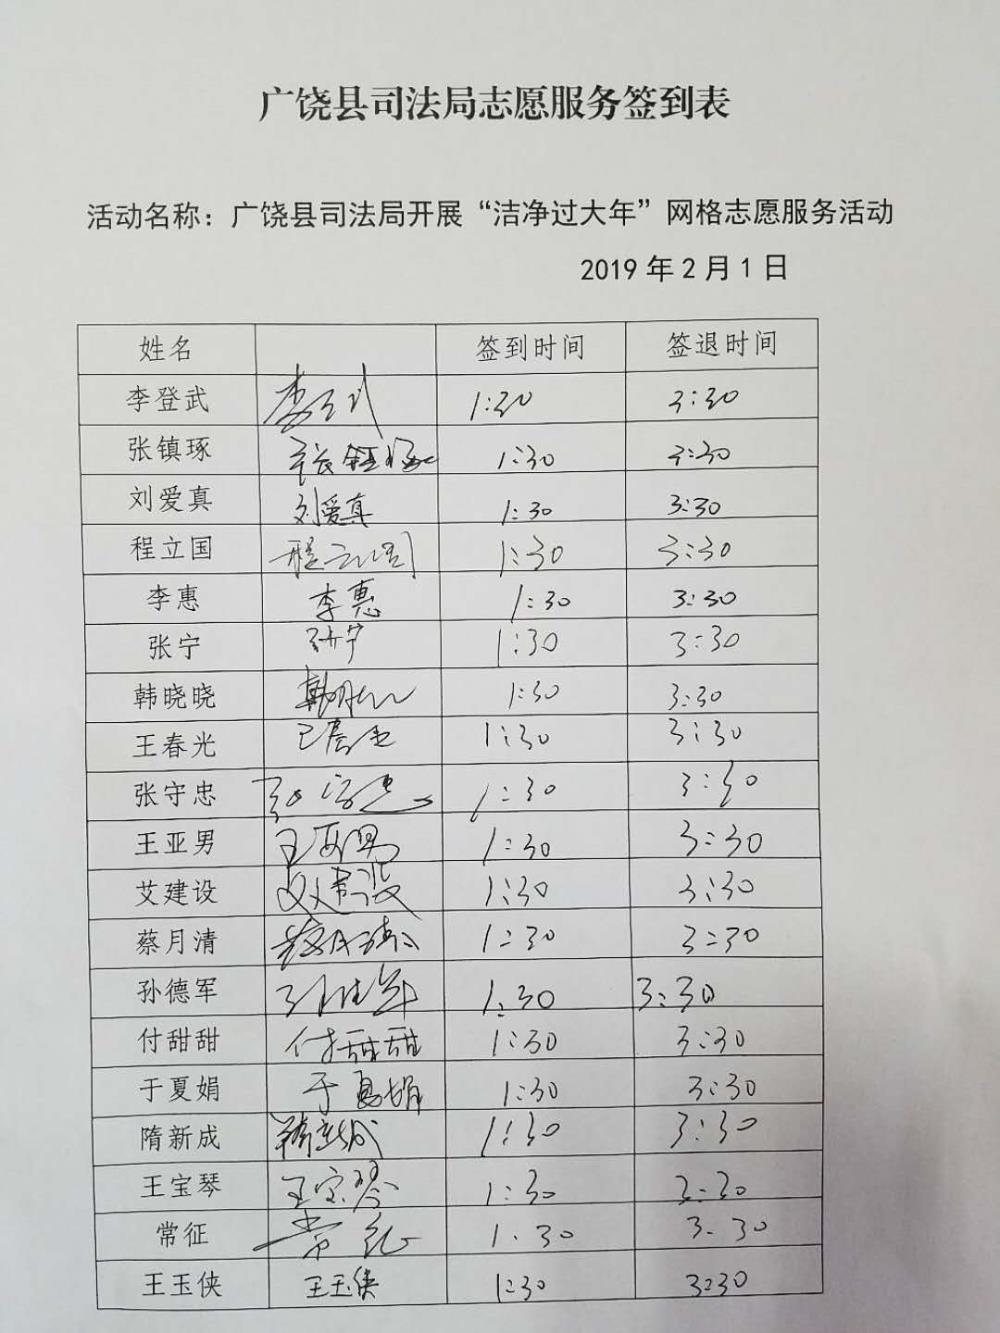 广饶县司法局志愿服务签到表
活动名称：广饶县司法局开展“洁净过大年”网格志愿服务活动
2019年2月1日
姓名 签到时间 签退时间
李登武 李登武 1:30 3:30
张镇琢 张镇琢 1:30 3:30
刘爱真 刘爱真 1:30 3:30
程立国 程立国 1:30 3:30
李惠 李惠 1:30 3:30
张宁 张宁 1:30 3:30
韩晓晓 韩晓晓 1:30 3:30
王春光 王春光 1:30 3:30
张守忠 张守忠 1:30 3:30
王亚男 王亚男 1:30 3:30
艾建设 艾建设 1:30 3:30
蔡月清 蔡月清 1:30 3:30
孙德军 孙德军 1:30 3:30
付甜甜 付甜甜 1:30 3:30
于夏娟 于夏娟 1:30 3:30
隋新成 隋新成 1:30 3:30
王宝琴 王宝琴 1:30 3:30
常征 常征 1.30 3.30
王玉侠 王玉侠 1:30 3:30